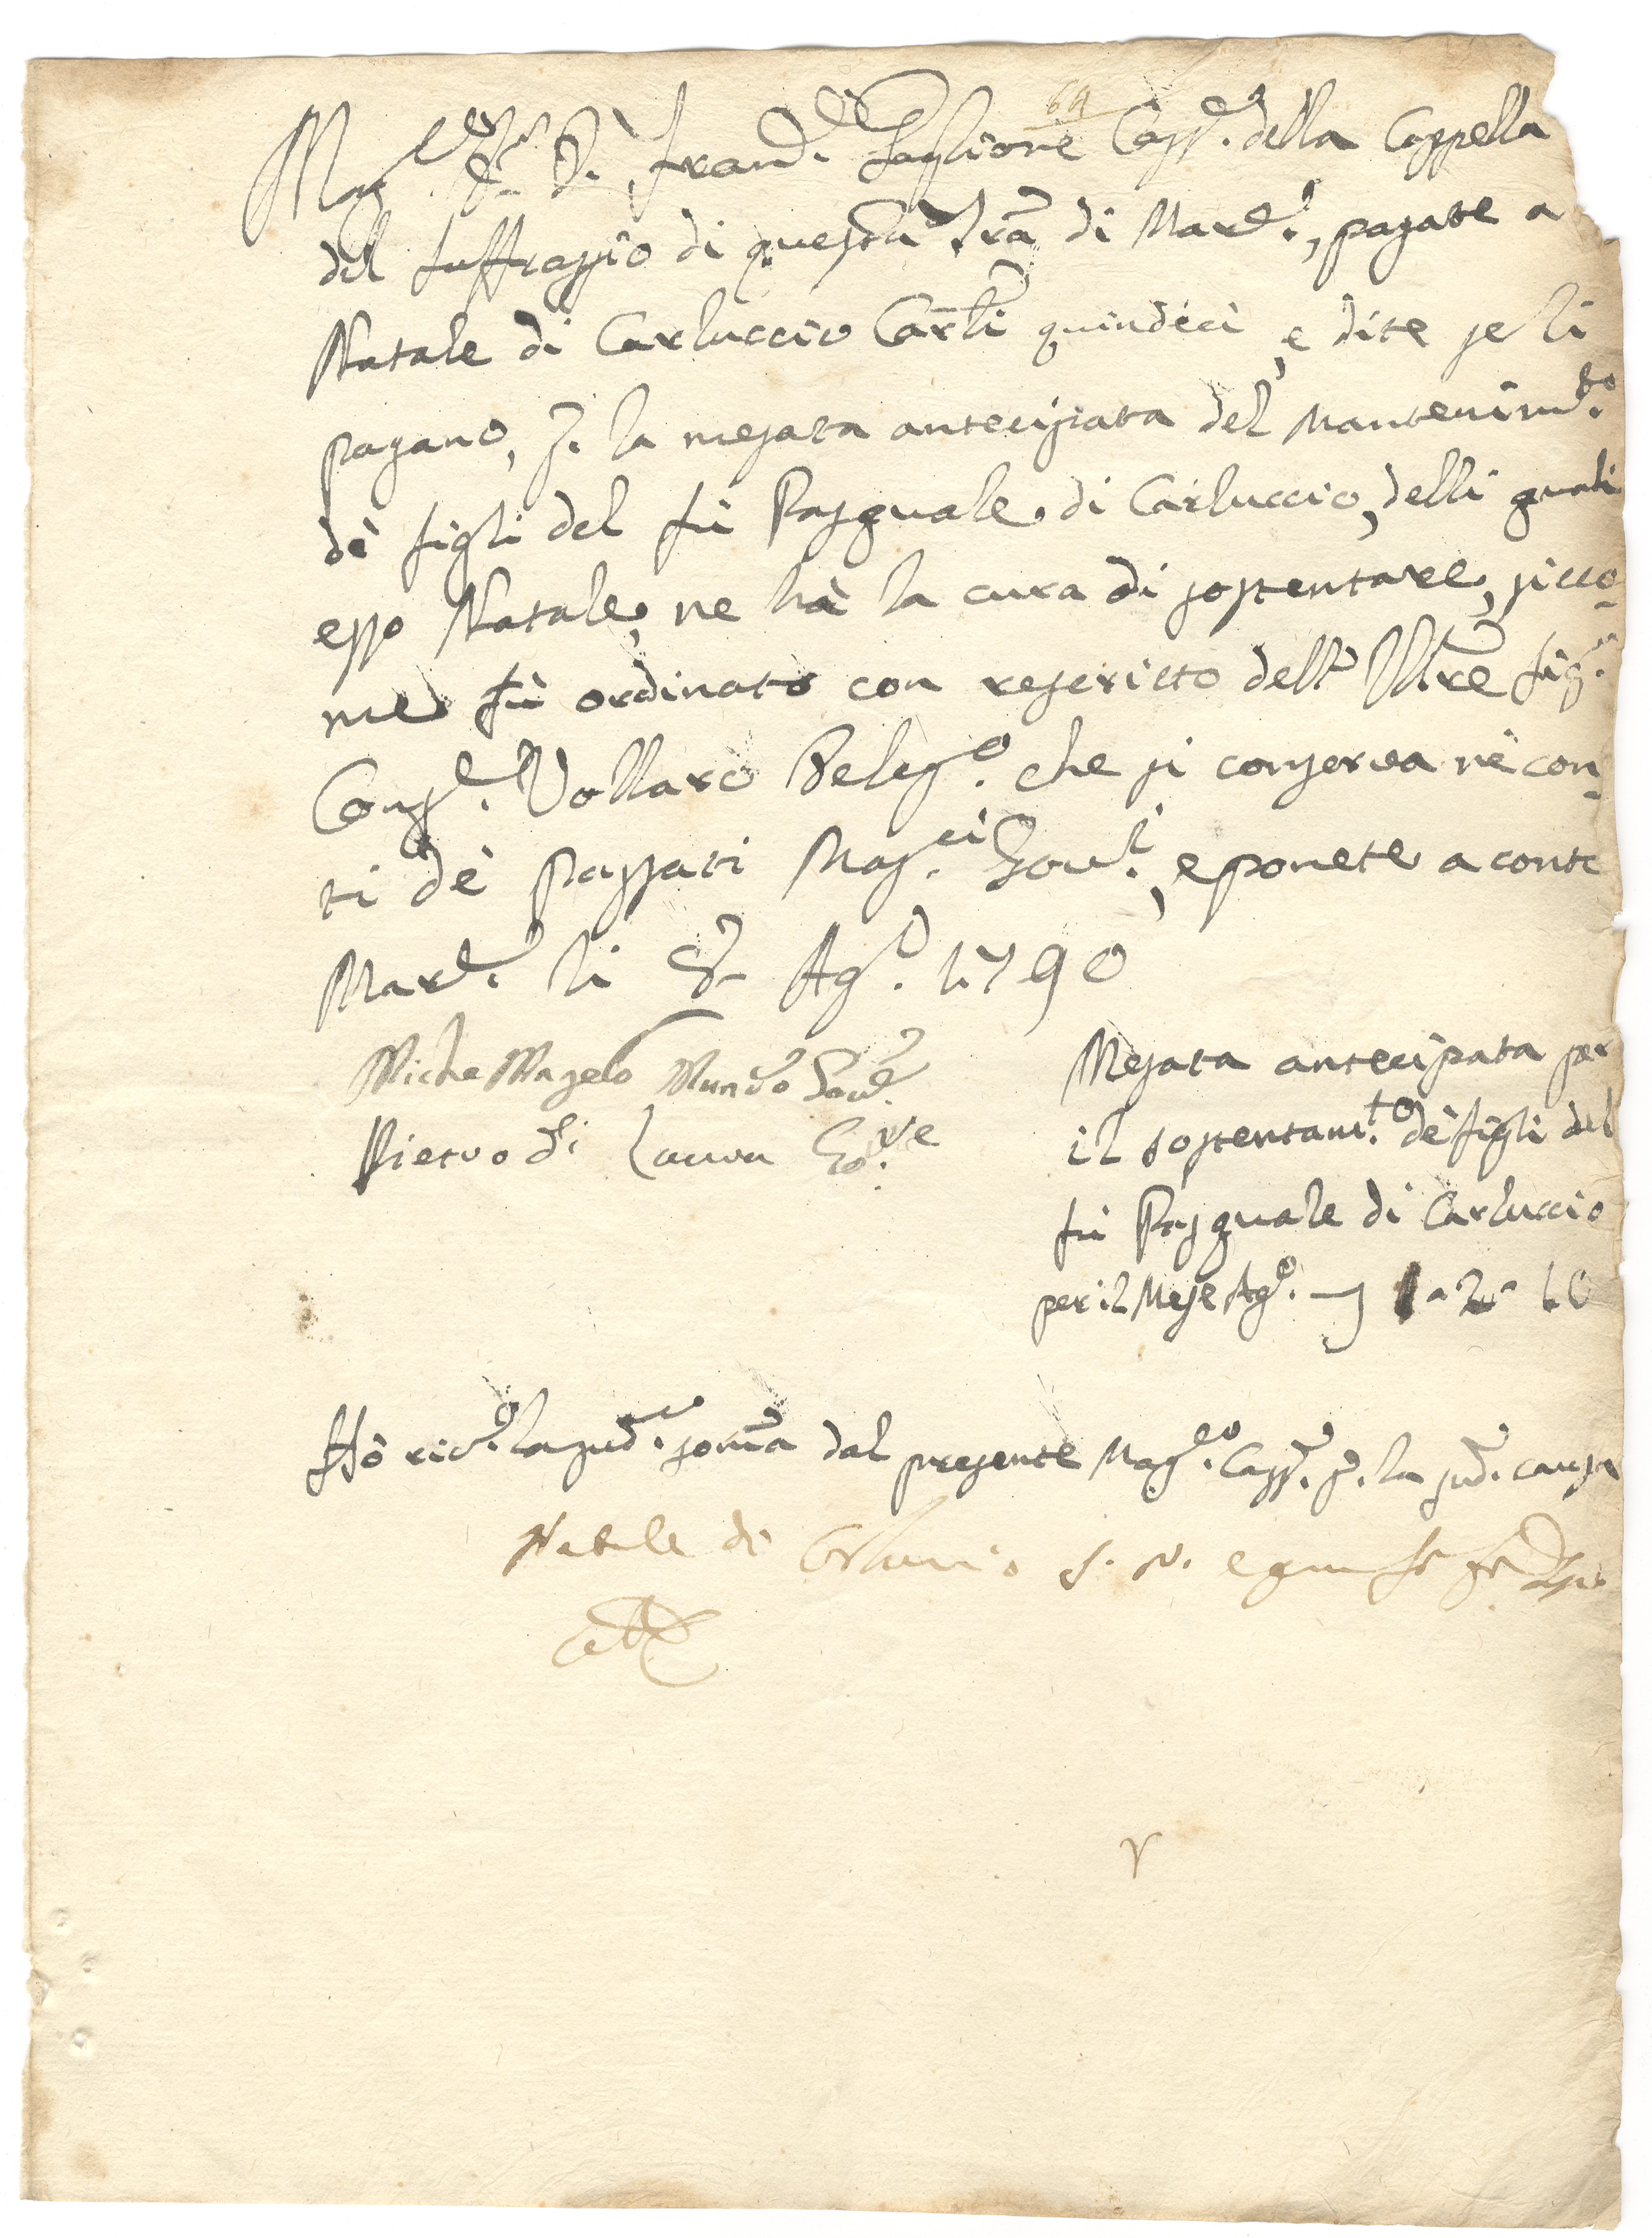 64
Mag.co D.r D. Fran.co Taglione Cass.e della Cappella
del Suffraggio di questa Tr̃a di Mard.e, pagate a
Natale di Carluccio Carlĩ quindeci, e dite se li
pagano, p. la mesata antecipata del mantenim.to
dè figli del fù Pasquale di Carluccio, delli quali
esso Natale, ne hà la cura di sostentare, sicco-
me fù ordinato con rescritto dell' Ill̃re Sig.r
Cons.e Vollaro Deleg.o che si conserva nè con-
ti dè passati Mag.ci Gov.i, e ponete a conto
Mard.e li 8 Ag.o 1790
Michel'Angelo Mundo Gov.e
Pietro di Lauro Gov.re
Mesata antecipata per
il sostentam.to dè figli del
fù Pasquale di Carluccio
per il Mese Ag.o 1-2-10
Hò ric.o la sud.a som̃a dal presente Mag.co Cass.e p. la sud.a causa
Natale di